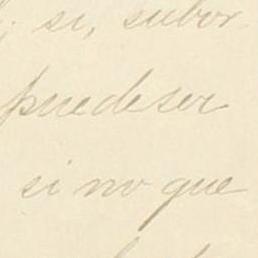 ; si, subor
puede ser
si no que